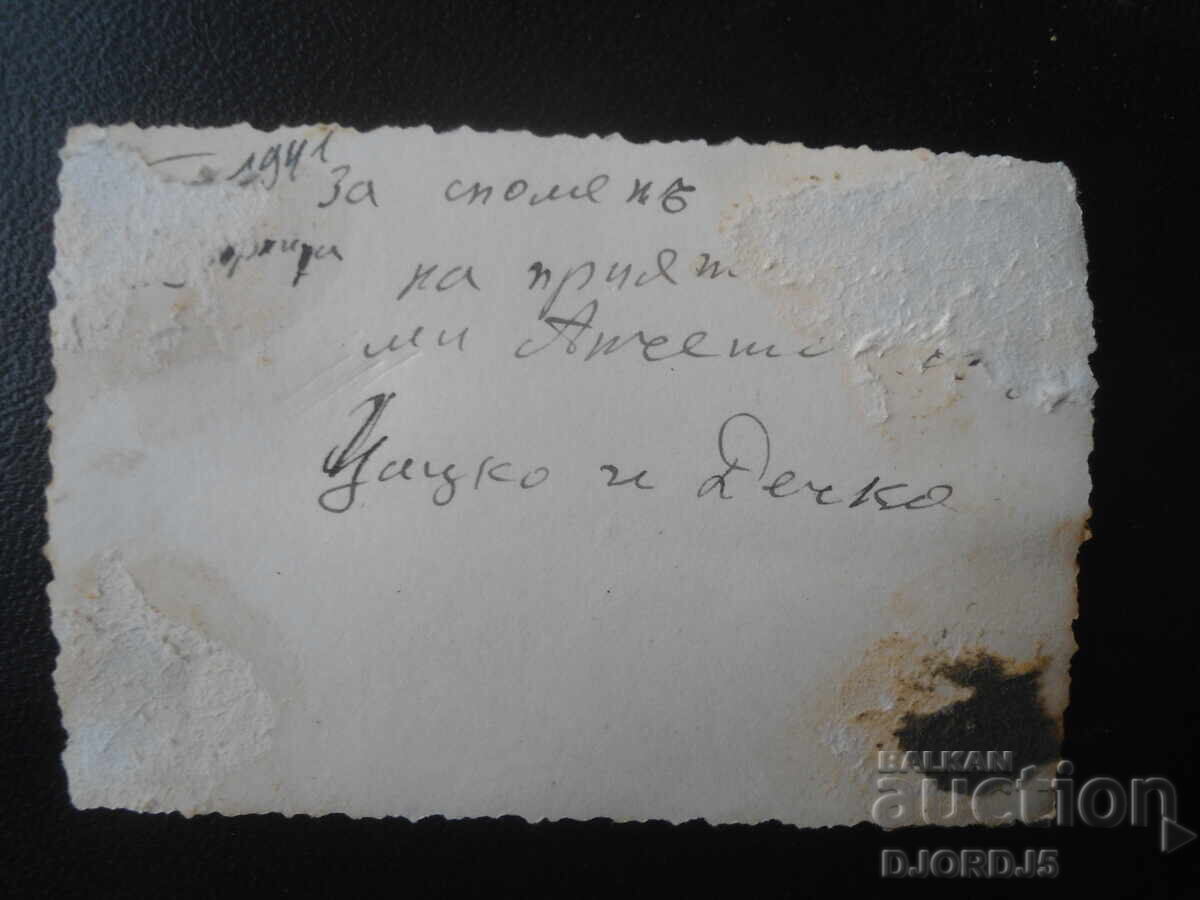 1941
За споменъ
на прият
ми
Цацко и Дечко
BALKAN
auction
DJORDJ5